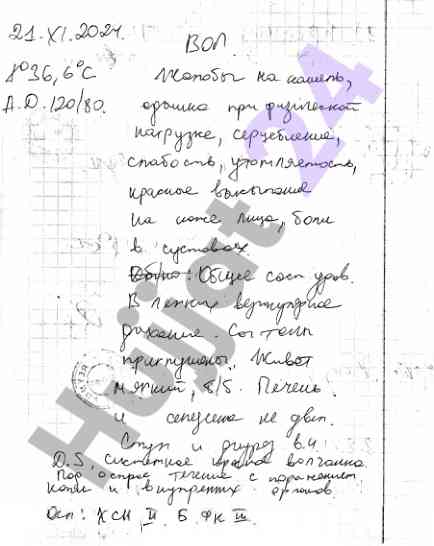 21.XI.2024.
ВОП.
t° 36,6°C
А.Д. 120/80.
Жалобы на кашель,
одышка при физической
нагрузке, серцебиение,
слабость, утомляемость,
красное высыпание
на коже лица, боли
в суставах.
Общее сост удов.
В легких везикулярное
дыхание. Сог тоны
приглушены. Живот
мягкий, б/б. Печень
и селезенка не
Стул и диурез в.н
D.S. системное красная волчанка.
Под острое течение с поражением
кожи и внутренних органов.
Осл: ХСН II Б ФК III.
Hujjat 24